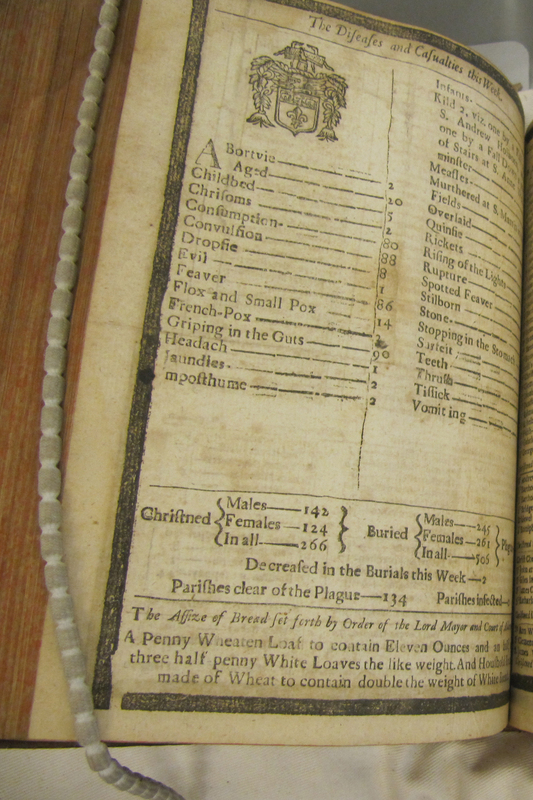 The Diseases and Casualties this Week.
ABortvie
Aged 2
Childbed 20
Chrisoms 5
Consumption 2
Convulsion 80
Dropsie 88
Evil 8
Feaver 1
Flox and Small Pox 86
French-Pox 14
Griping in the Guts
Headach 90
Jaundies 1
mposthume 2
2
Infants
Kild 2, viz. one by a
S. Andrew
one by a Fall
of Stairs at S. Anne
minster
Measles
Murthered at S. Martin
Fields
Overlaid
Quinsie
Rickets
Rising of the Lights
Rupture
Spotted Feaver
Stilborn
Stone
Stopping in the Stomach
Surfeit
Teeth
Thrush
Tissick
Vomiting
Christned { Males 142 Females 124 In all 266 }
Buried { Males 245 Females 261 In all 506 } Plag
Decreased in the Burials this Week 2
Parishes clear of the Plague 134 Parishes infected
The Assize of Bread set forth by Order of the Lord Mayor and Court of
A Penny Wheaten Loaf to contain Eleven Ounces and
three half penny White Loaves the like weight. And Houshold
made of Wheat to contain double the weight of White